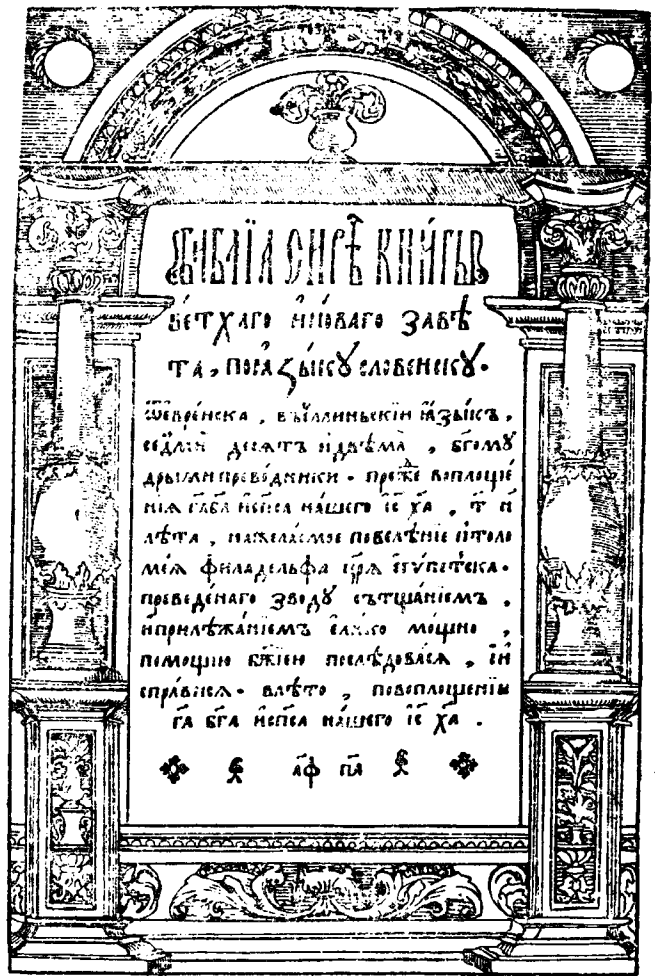 Библїѧ сирѣ книгы
ветхаго и новаго завѣ
та, по ѧзыку словенску.
ѿ еврейска, въ еллиньскїи ѧзыкъ,
седмїю десѧтъ и двѣма, бг҃ому
дрыми преводники. преже воплоще
нїѧ га҃ ба҃ и сп҃са нашего іс҃ ха҃, т҃ и
лѣта, на желаемое повелѣнїе птоло
меѧ филаделфа цр҃ѧ египетска.
преведенаго зводу сътщанїемъ,
и прилѣжанїемъ елико мощно,
помощїю бж҃їею послѣдовасѧ, и и
справисѧ. в лѣто, по воплощенїи
га҃ бг҃а и сп҃са нашего іс҃ ха҃.
аф҃ па҃